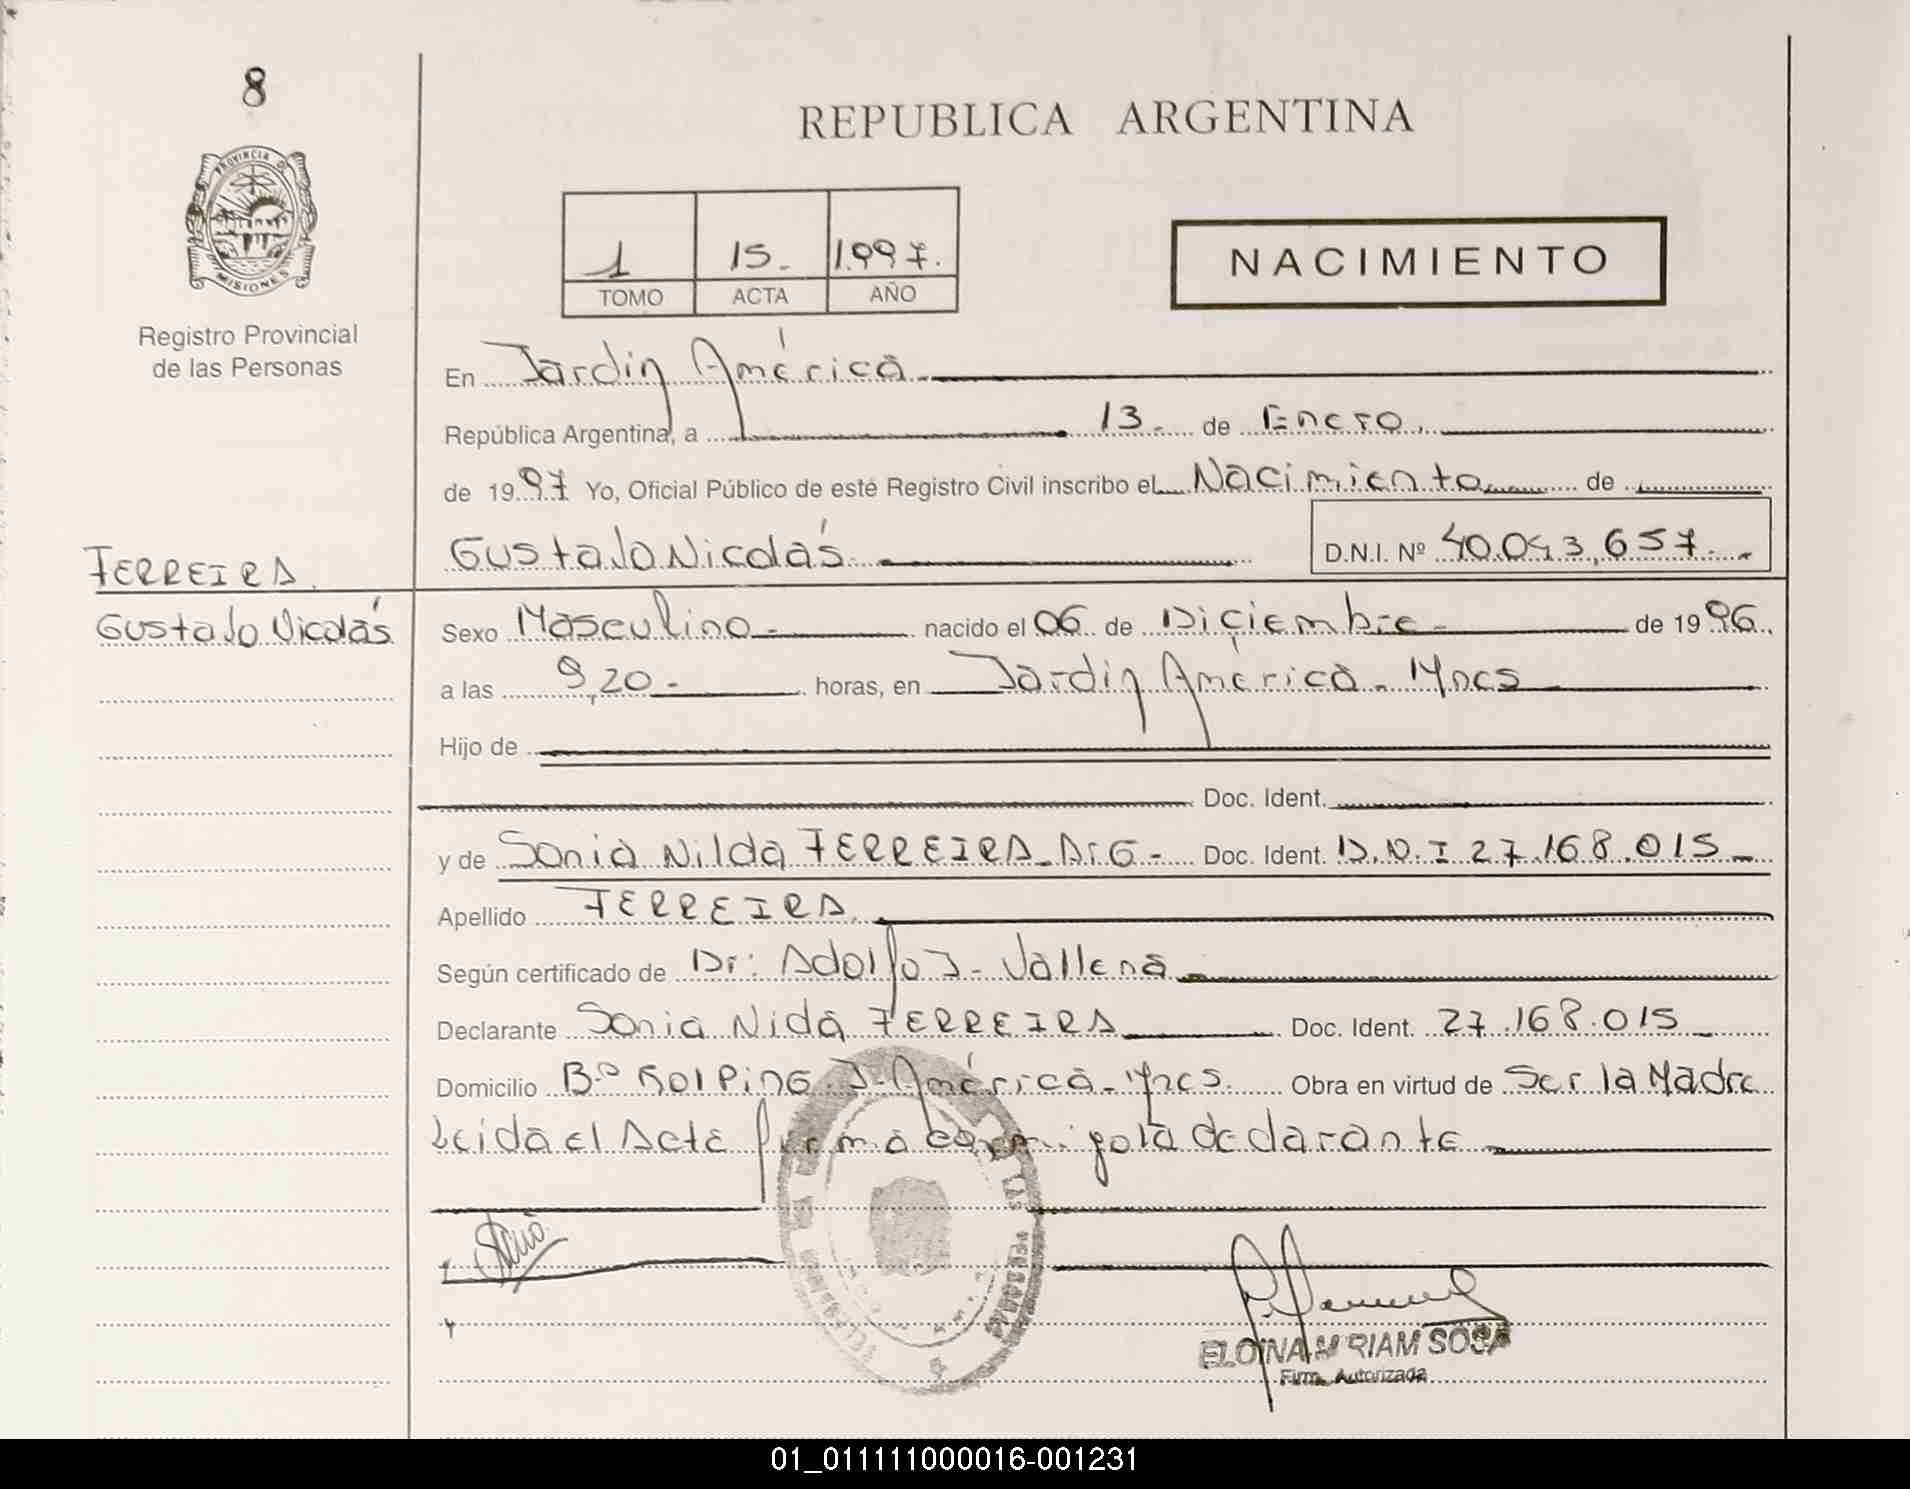 8
PROVINCIA DE
MISIONES
Registro Provincial
de las Personas
REPUBLICA ARGENTINA
1 15. 1.997.
TOMO ACTA AÑO
NACIMIENTO
En Jardin América
República Argentina, a 13. de Enero.
de 1997 Yo, Oficial Público de esté Registro Civil inscribo el Nacimiento de
Gustavo Nicolás D.N.I. Nº 40.043,657.
FERREIRA
Gustavo Nicolás
Sexo Masculino nacido el 06 de Diciembre de 1996
a las 9,20 horas, en Jardin América - Mnes
Hijo de
Doc. Ident.
y de Sonia Nilda FERREIRA - ArG - Doc. Ident. D.N.I 27.168.015
Apellido FERREIRA
Según certificado de Dr: Adolfo J. Vallena
Declarante Sonia Nida FERREIRA Doc. Ident. 27.168.015
Domicilio Bº KolPinG J-América - Mnes. Obra en virtud de Ser la Madre
Leida el Acta firma conmigo la declarante
ELOINA MIRIAM SOSA
Firma Autorizada
01_011111000016-001231